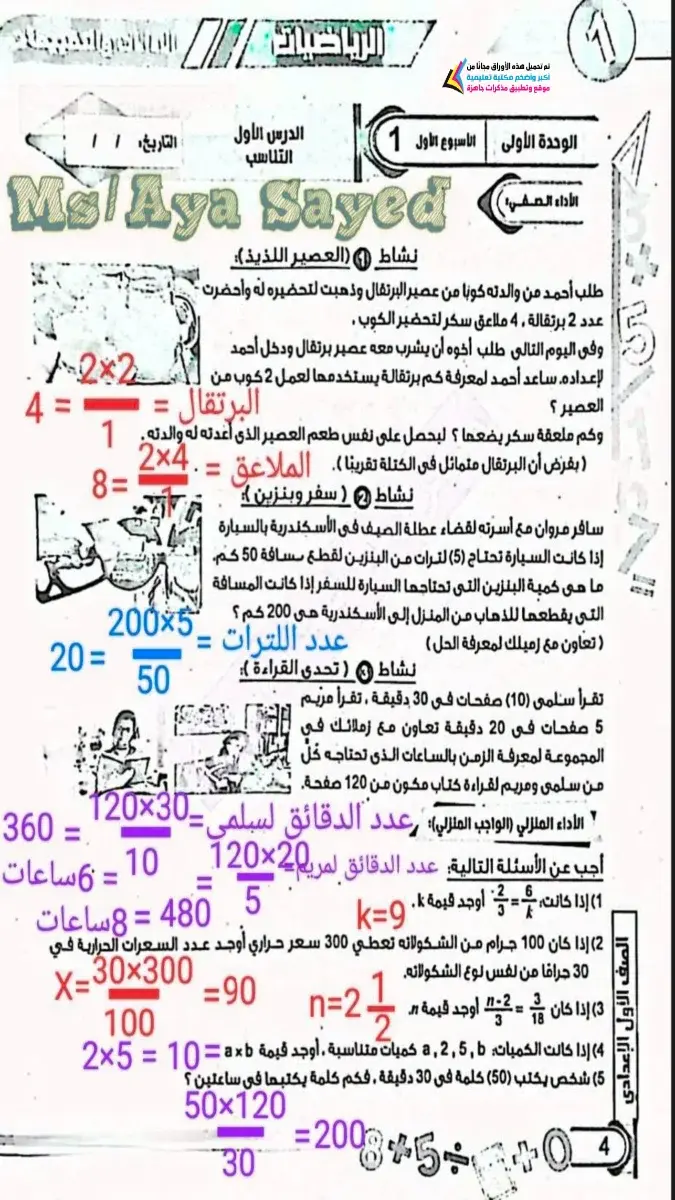 1
الرياضيات
تم تحميل هذه الأوراق مجانا من
أكبر وأضخم مكتبة تعليمية
موقع وتطبيق مذكرات جاهزة
الوحدة الأولى
الأسبوع الأول 1
الدرس الأول
التناسب
التاريخ: / /
Ms/Aya Sayed
الأداء الصفي:
نشاط 1 (العصير اللذيذ):
طلب أحمد من والدته كوبا من عصير البرتقال وذهبت لتحضيره له وأحضرت
عدد 2 برتقالة ، 4 ملاعق سكر لتحضير الكوب ،
وفى اليوم التالى طلب أخوه أن يشرب معه عصير برتقال ودخل أحمد
لإعداده. ساعد أحمد لمعرفة كم برتقالة يستخدمها لعمل 2 كوب من
العصير ؟
البرتقال = 2×2/1 = 4
وكم ملعقة سكر يضعها ؟ ليحصل على نفس طعم العصير الذى أعدته له والدته.
(بفرض أن البرتقال متماثل فى الكتلة تقريبًا).
الملاعق = 2×4/1 =8
نشاط 2 (سفر وبنزين):
سافر مروان مع أسرته لقضاء عطلة الصيف فى الأسكندرية بالسيارة
إذا كانت السيارة تحتاج (5) لترات من البنزين لقطع مسافة 50 كم.
ما هى كمية البنزين التى تحتاجها السيارة للسفر إذا كانت المسافة
التى يقطعها للذهاب من المنزل إلى الأسكندرية هى 200 كم ؟
(تعاون مع زميلك لمعرفة الحل)
عدد اللترات = 200×5/50 = 20
نشاط 3 (تحدى القراءة):
تقرأ سلمى (10) صفحات فى 30 دقيقة ، تقرأ مريم
5 صفحات فى 20 دقيقة تعاون مع زملائك فى
المجموعة لمعرفة الزمن بالساعات الذى تحتاجه كل
من سلمى ومريم لقراءة كتاب مكون من 120 صفحة.
عدد الدقائق لسلمى= 120×30/10 = 360
= 6ساعات
الأداء المنزلي (الواجب المنزلي):
عدد الدقائق لمريم= 120×20/5 =
480 = 8ساعات
أجب عن الأسئلة التالية:
1) إذا كانت: 2/3 = 6/k أوجد قيمة k.
k=9
2) إذا كان 100 جرام من الشكولاته تعطي 300 سعر حراري أوجد عدد السعرات الحرارية في
30 جرامًا من نفس نوع الشكولاته.
X=30×300/100 =90
3) إذا كان n-2/3 = 3/18 أوجد قيمة n.
n=2 1/2
4) إذا كانت الكميات: a , 2 , 5 , b كميات متناسبة ، أوجد قيمة a×b
=2×5 = 10
5) شخص يكتب (50) كلمة فى 30 دقيقة ، فكم كلمة يكتبها فى ساعتين ؟
50×120/30 =200
الصف الأول الإعدادى
4